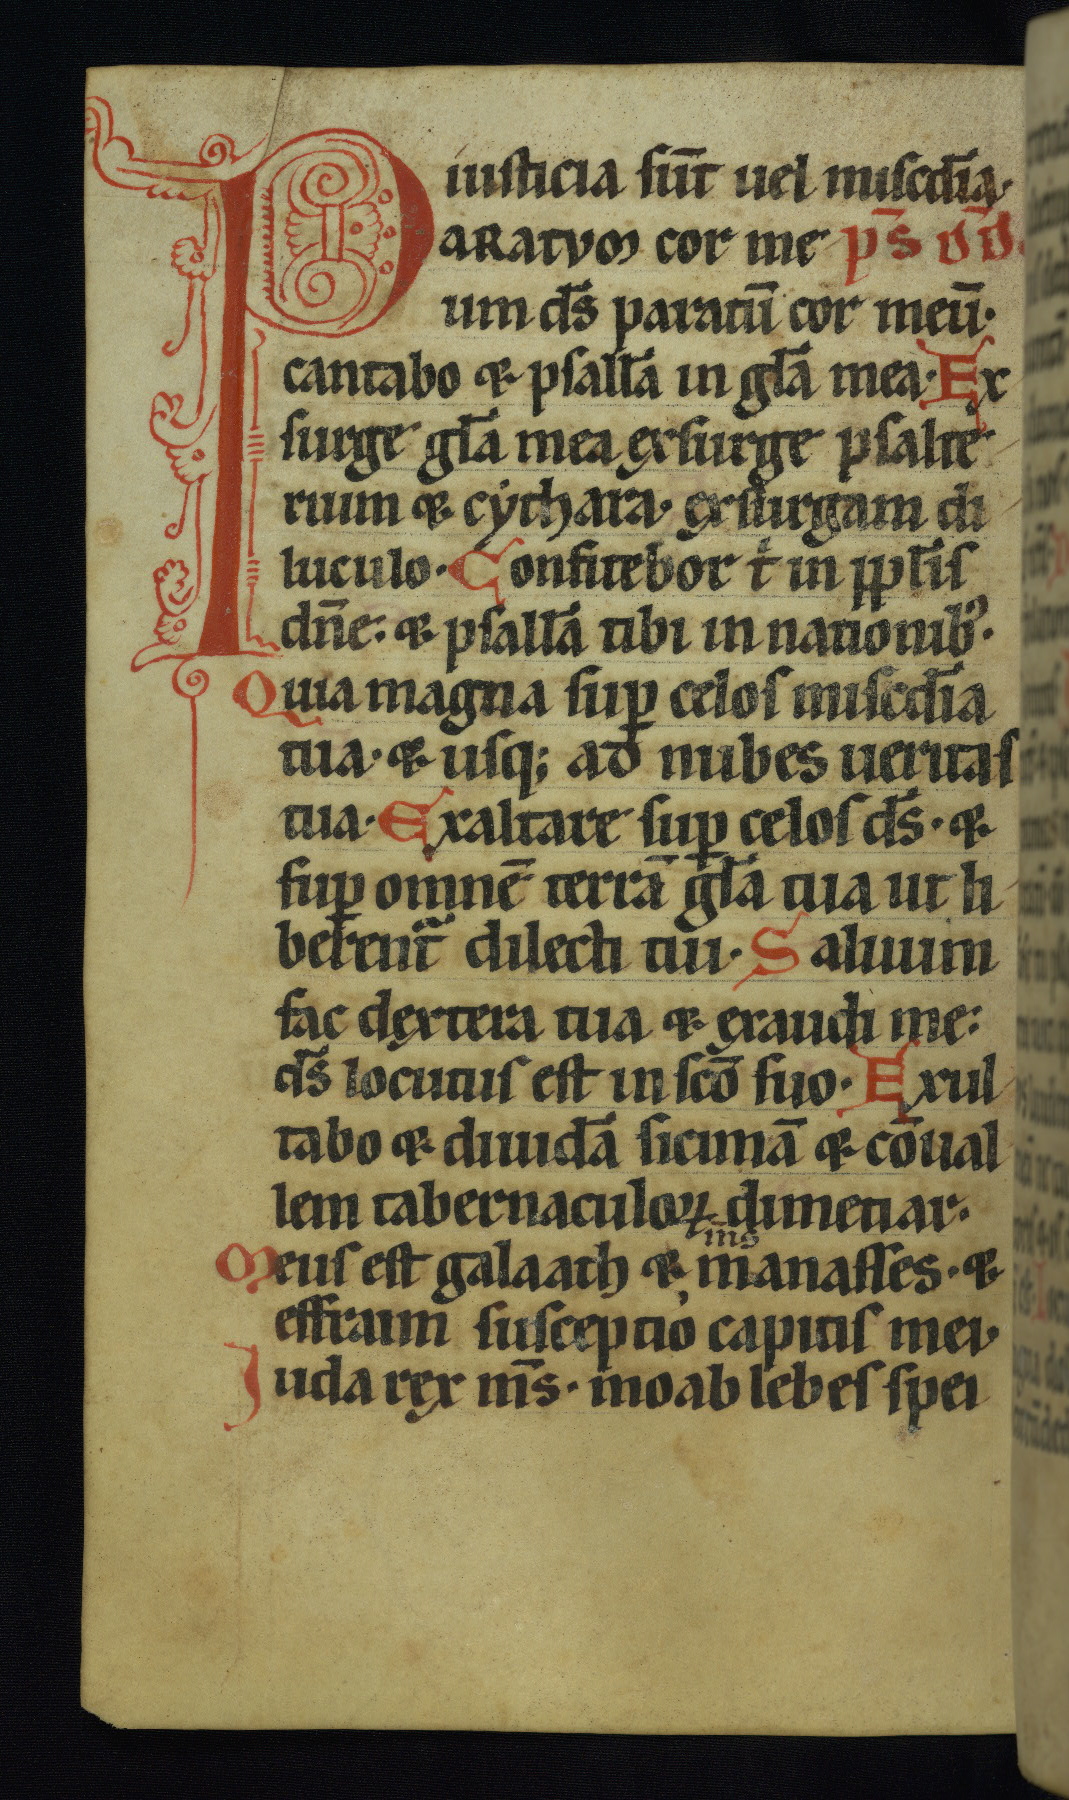 iusticia sūt uel miscđia·
PARATVM cor me p̄s dd̄.
um ds̄ paratū cor meū·
cantabo & psallā in gl̄a mea· Ex
surge gl̄a mea exsurge psalte
rium & cythara· exsurgam di
luculo· Confitebor t̄ in ppl̄is
dn̄e: & psallā tibi in nationib9·
Quia magna sup̱ celos miscđia
tua· & usq; ad nubes ueritas
tua· Exaltare sup̱ celos ds̄· &
sup̱ omnē terrā gl̄a tua ut li
berent᷑ dilecti tui· Saluum
fac dextera tua & exaudi me:
ds̄ locutus est in scō suo· Exul
tabo & diuidā sicimā & cōual
lem tabernaculoꝝ dimetiar·
Meus est galaath & m̄s manasses· &
effraim susceptio capitis mei·
Juda rex m̄s· moab lebes spei